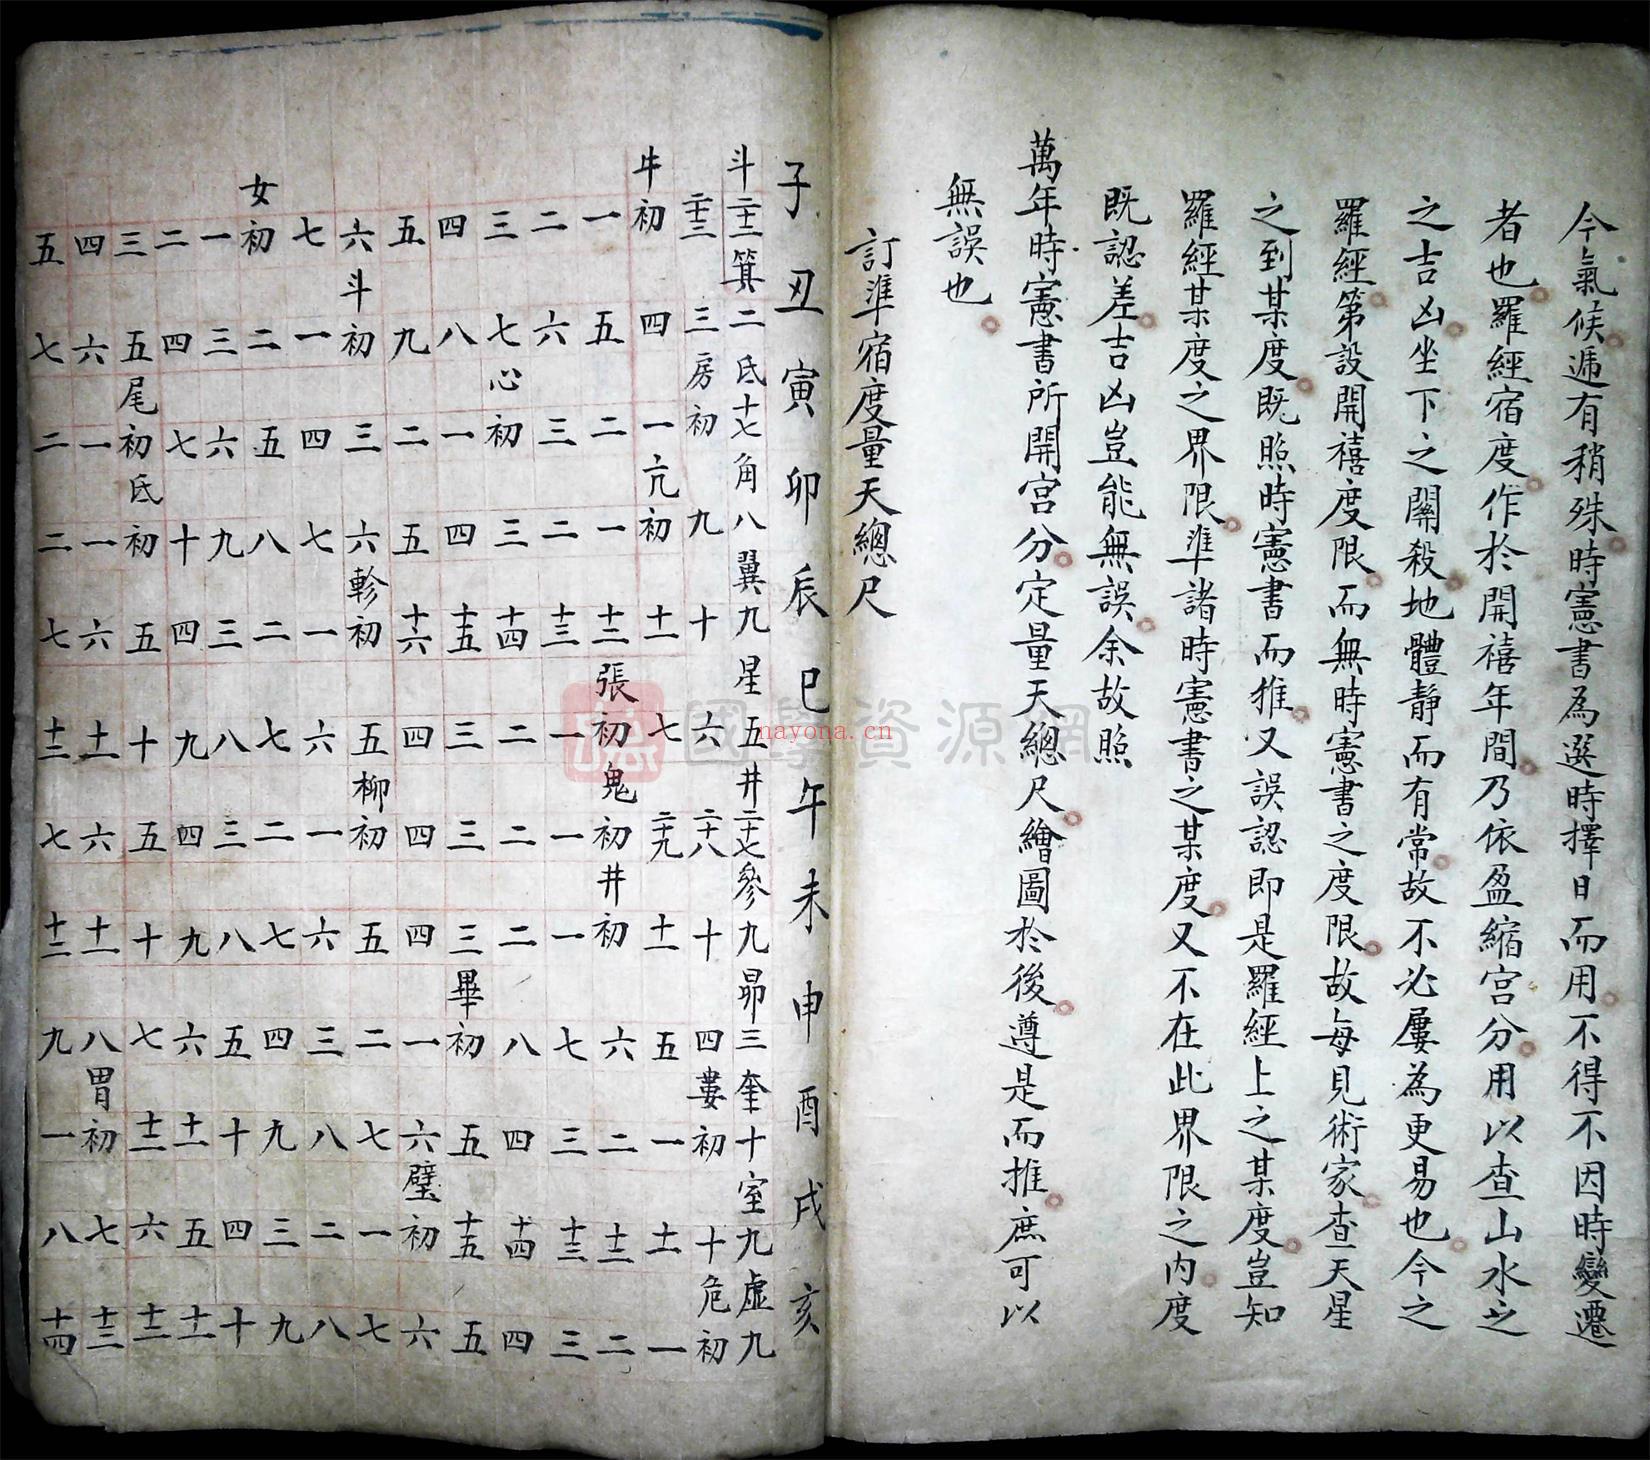 今氣候遞有稍殊時憲書為選時擇日而用不得不因時變遷
者也羅經宿度作於開禧年間乃依盈縮宮分用以查山水之
之吉凶坐下之關殺地體靜而有常故不必屢為更易也今之
羅經第設開禧度限而無時憲書之度限故每見術家查天星
之到某度既照時憲書而推又誤認即是羅經上之某度豈知
羅經某度之界限準諸時憲書之某度又不在此界限之內度
既認差吉凶豈能無誤余故照
萬年時憲書所開宮分定量天總尺繪圖於後遵是而推庶可以
無誤也
訂準宿度量天總尺
子丑寅卯辰巳午未申酉戌亥
斗二十二箕二氐十七角八翼九星五井二十七參九昴三奎十室九虛九
二十三三房初九十六二十八十四婁初十危初
牛初四一亢初十一七二十九十一五一十一一
一五二一十二張初鬼初井初六二十二二
二六三二十三一一一七三十三三
三七心初三十四二二二八四十四四
四八一四十五三三三畢初五十五五
五九二五十六四四四一六璧初六
六斗初三六軫初五柳初五二七一七
七一四七一六一六三八二八
女初二五八二七二七四九三九
一三六九三八三八五十四十
二四七十四九四九六十一五十一
三五尾初氐初五十五十七十二六十二
四六一一六十一六十一八胃初七十三
五七二二七十二七十二九一八十四
國學資源網
nayona.cn